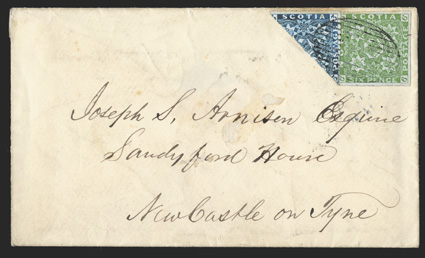 SCOTIA SCOTIA
SIX PENCE
Joseph S. Arnison Esquire
Sandyford House
NewCastle on Tyne